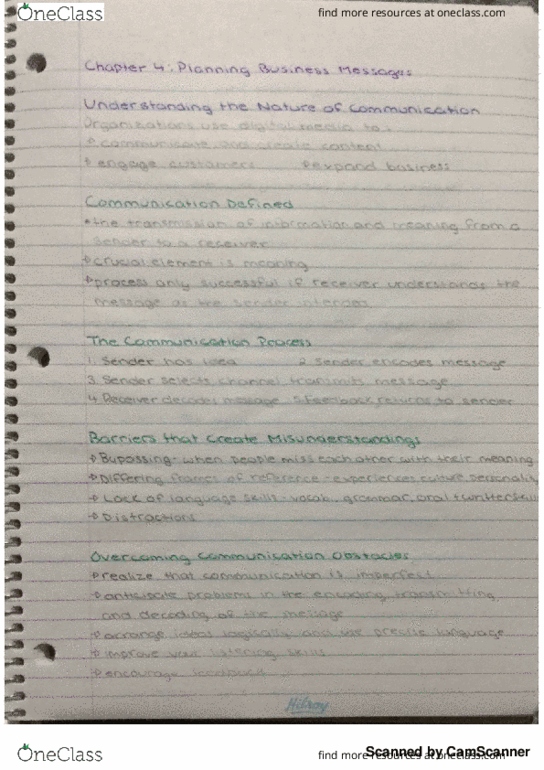 OneClass
find more resources at oneclass.com
Chapter 4: Planning Business Messages
Understanding the Nature of Communication
Organizations use digital media to:
communicate and create content
engage customers expand business
Communication Defined
the transmission of information and meaning from a
sender to a receiver
crucial element is meaning
process only successful if receiver understands the
message as the sender intended
The Communication Process
1. Sender has idea 2. Sender encodes message
3. Sender selects channel transmits message
4. Receiver decodes message 5. Feedback returns to sender
Barriers that Create Misunderstandings
Bypassing - when people miss each other with their meaning
Differing frames of reference - experiences culture, personality
Lack of language skills - vocab, grammar, oral + written skills
Distractions
Overcoming Communication Obstacles
realize that communication is imperfect
anticipate problems in the encoding, transmitting,
and decoding of the message
arrange ideas logically and use precise language
improve your listening skills
encourage feedback
Hilroy
OneClass
find more resources at oneclass.com
Scanned by CamScanner